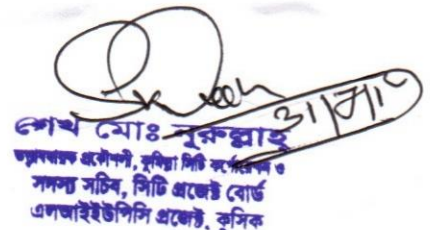 শেখ মোঃ নুরুল্লাহ
তত্ত্বাবধায়ক প্রকৌশলী, কুমিল্লা সিটি কর্পোরেশন ও
সদস্য সচিব, সিটি প্রজেক্ট বোর্ড
এলআইইউপিসি প্রজেক্ট, কুসিক